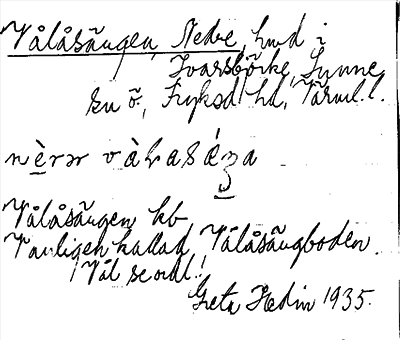 Vålåsängen, Nedre, hmd i
Ivarsbjörke, Sunne
sn ö., Fryksd. hd, Värml. l.
nè̱rər vàlasáŋa
Vålåsängen kb
Vanligen kallad Vålåsängboden.
Vål se ordl.!
Greta Hedin 1935.